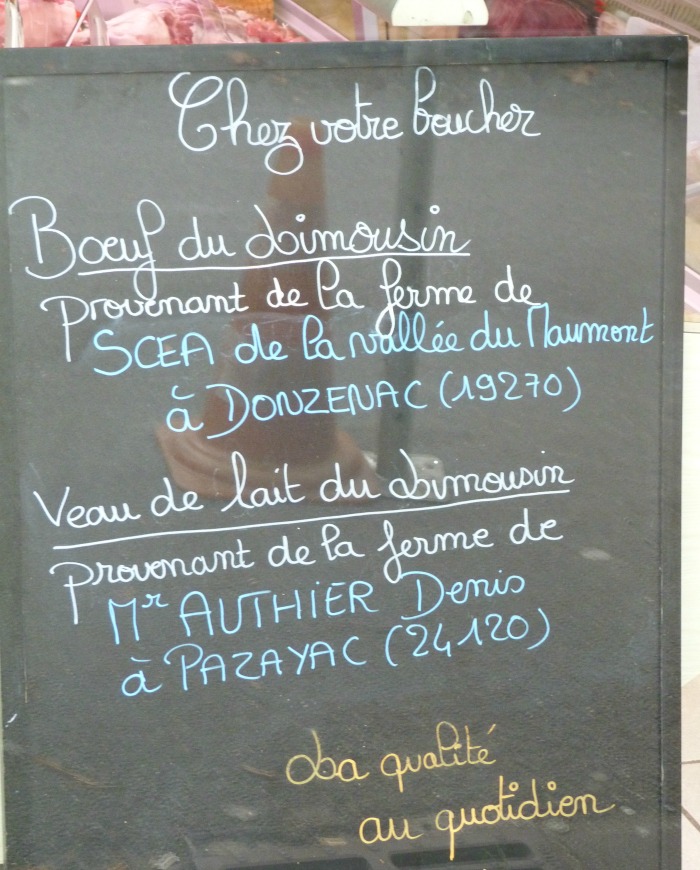 Chez votre boucher
Bœuf du Limousin
provenant de la ferme de
SCEA de la vallée du Maumont
à DONZENAC (19270)
Veau de lait du Limousin
provenant de la ferme de
Mr AUTHIER Denis
à PAZAYAC (24120)
La qualité
au quotidien